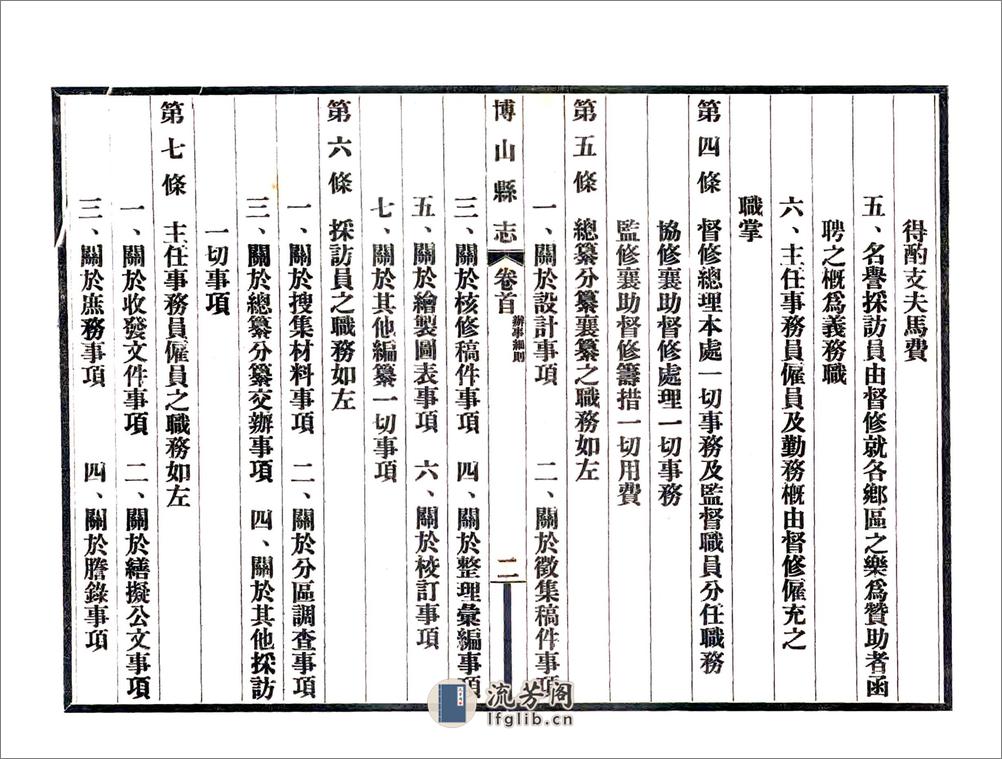 得酌支夫馬費
五、名譽採訪員由督修就各鄉區之樂爲贊助者函
聘之概爲義務職
六、主任事務員僱員及勤務概由督修僱充之
職掌
第四條　督修總理本處一切事務及監督職員分任職務
協修襄助督修處理一切事務
監修襄助督修籌措一切用費
第五條　總纂分纂襄纂之職務如左
一、關於設計事項　二、關於徵集稿件事項
博山縣志　卷首　辦事細則　二
三、關於核修稿件事項　四、關於整理彙編事項
五、關於繪製圖表事項　六、關於校訂事項
七、關於其他編纂一切事項
第六條　採訪員之職務如左
一、關於搜集材料事項　二、關於分區調查事項
三、關於總纂分纂交辦事項　四、關於其他採訪
一切事項
第七條　主任事務員僱員之職務如左
一、關於收發文件事項　二、關於繕擬公文事項
三、關於庶務事項　四、關於謄錄事項
流芳阁
lfglib.cn